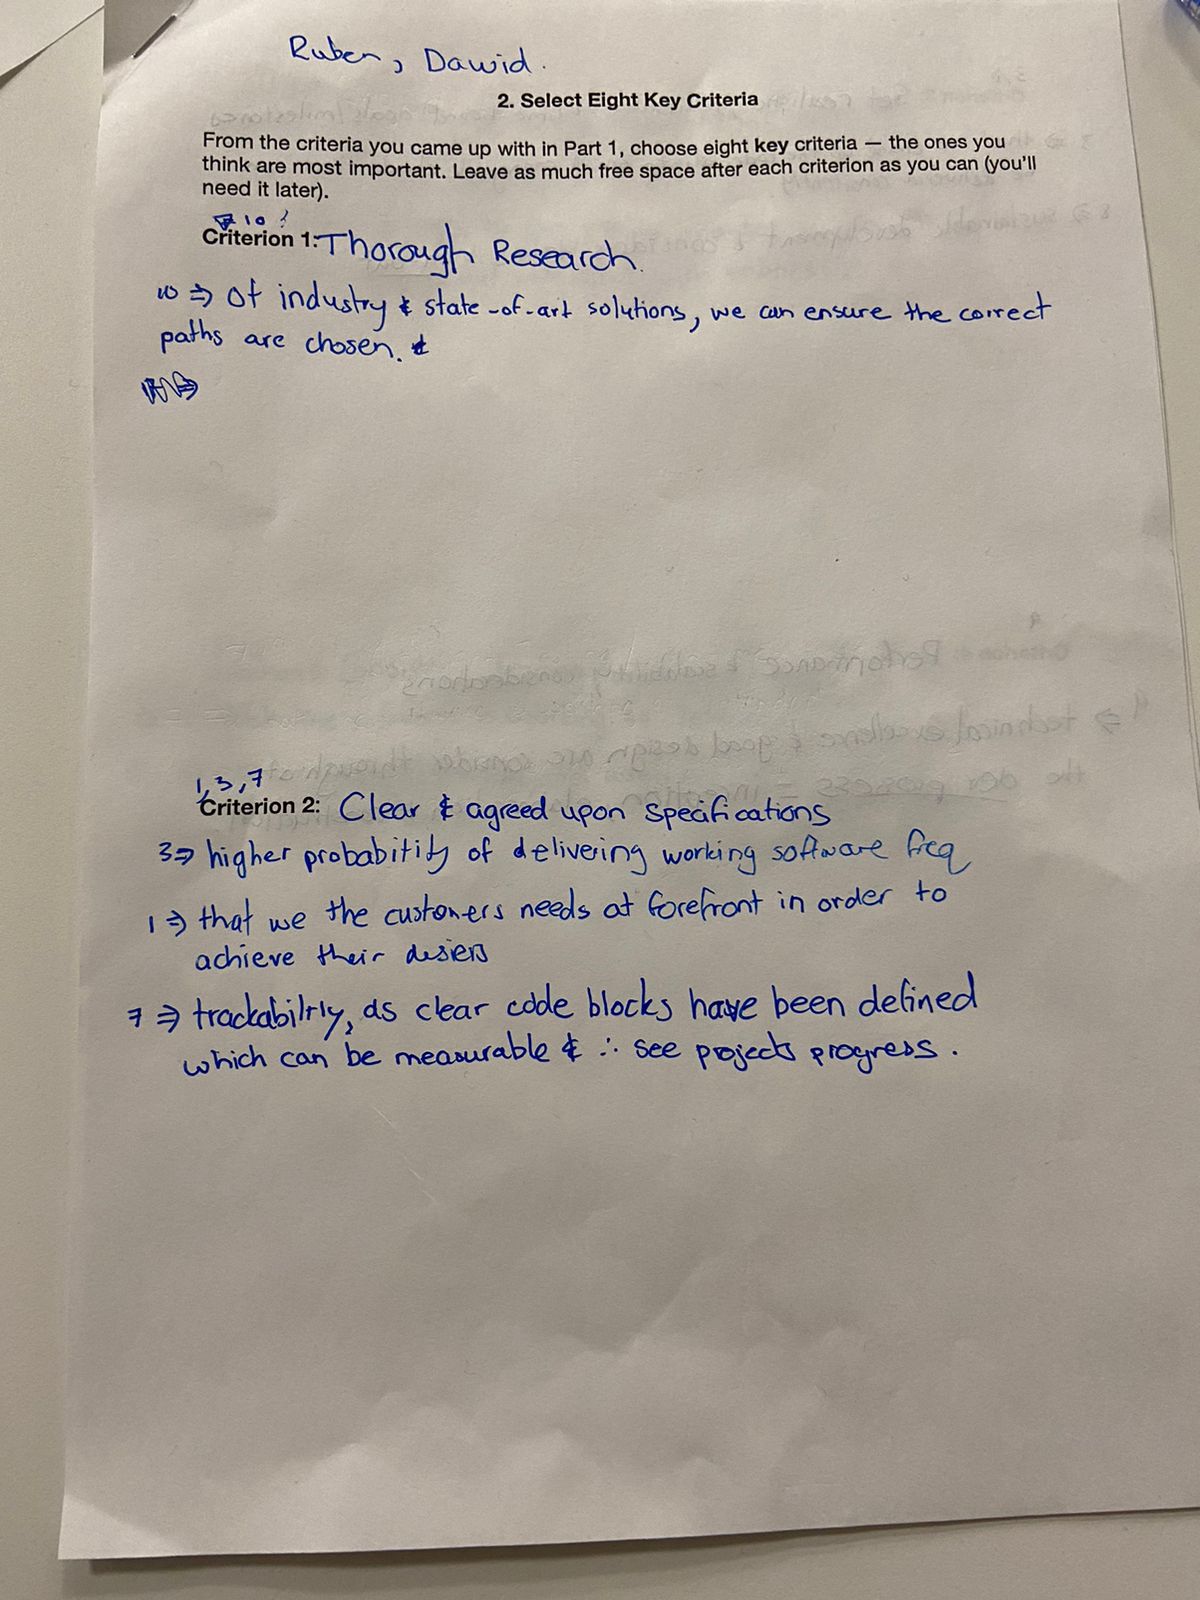 Ruben, Dawid.
2. Select Eight Key Criteria
From the criteria you came up with in Part 1, choose eight key criteria — the ones you
think are most important. Leave as much free space after each criterion as you can (you'll
need it later).
10 ?
Criterion 1: Thorough Research.
10 ⇒ Of industry & state-of-art solutions, we can ensure the correct
paths are chosen.
1,3,7
Criterion 2: Clear & agreed upon specifications
3⇒ higher probabitity of delivering working software freq
1⇒ that we the customers needs at forefront in order to
achieve their desiers
7⇒ trackabilrly, as clear code blocks have been defined
which can be measurable & ∴ see projects progress.